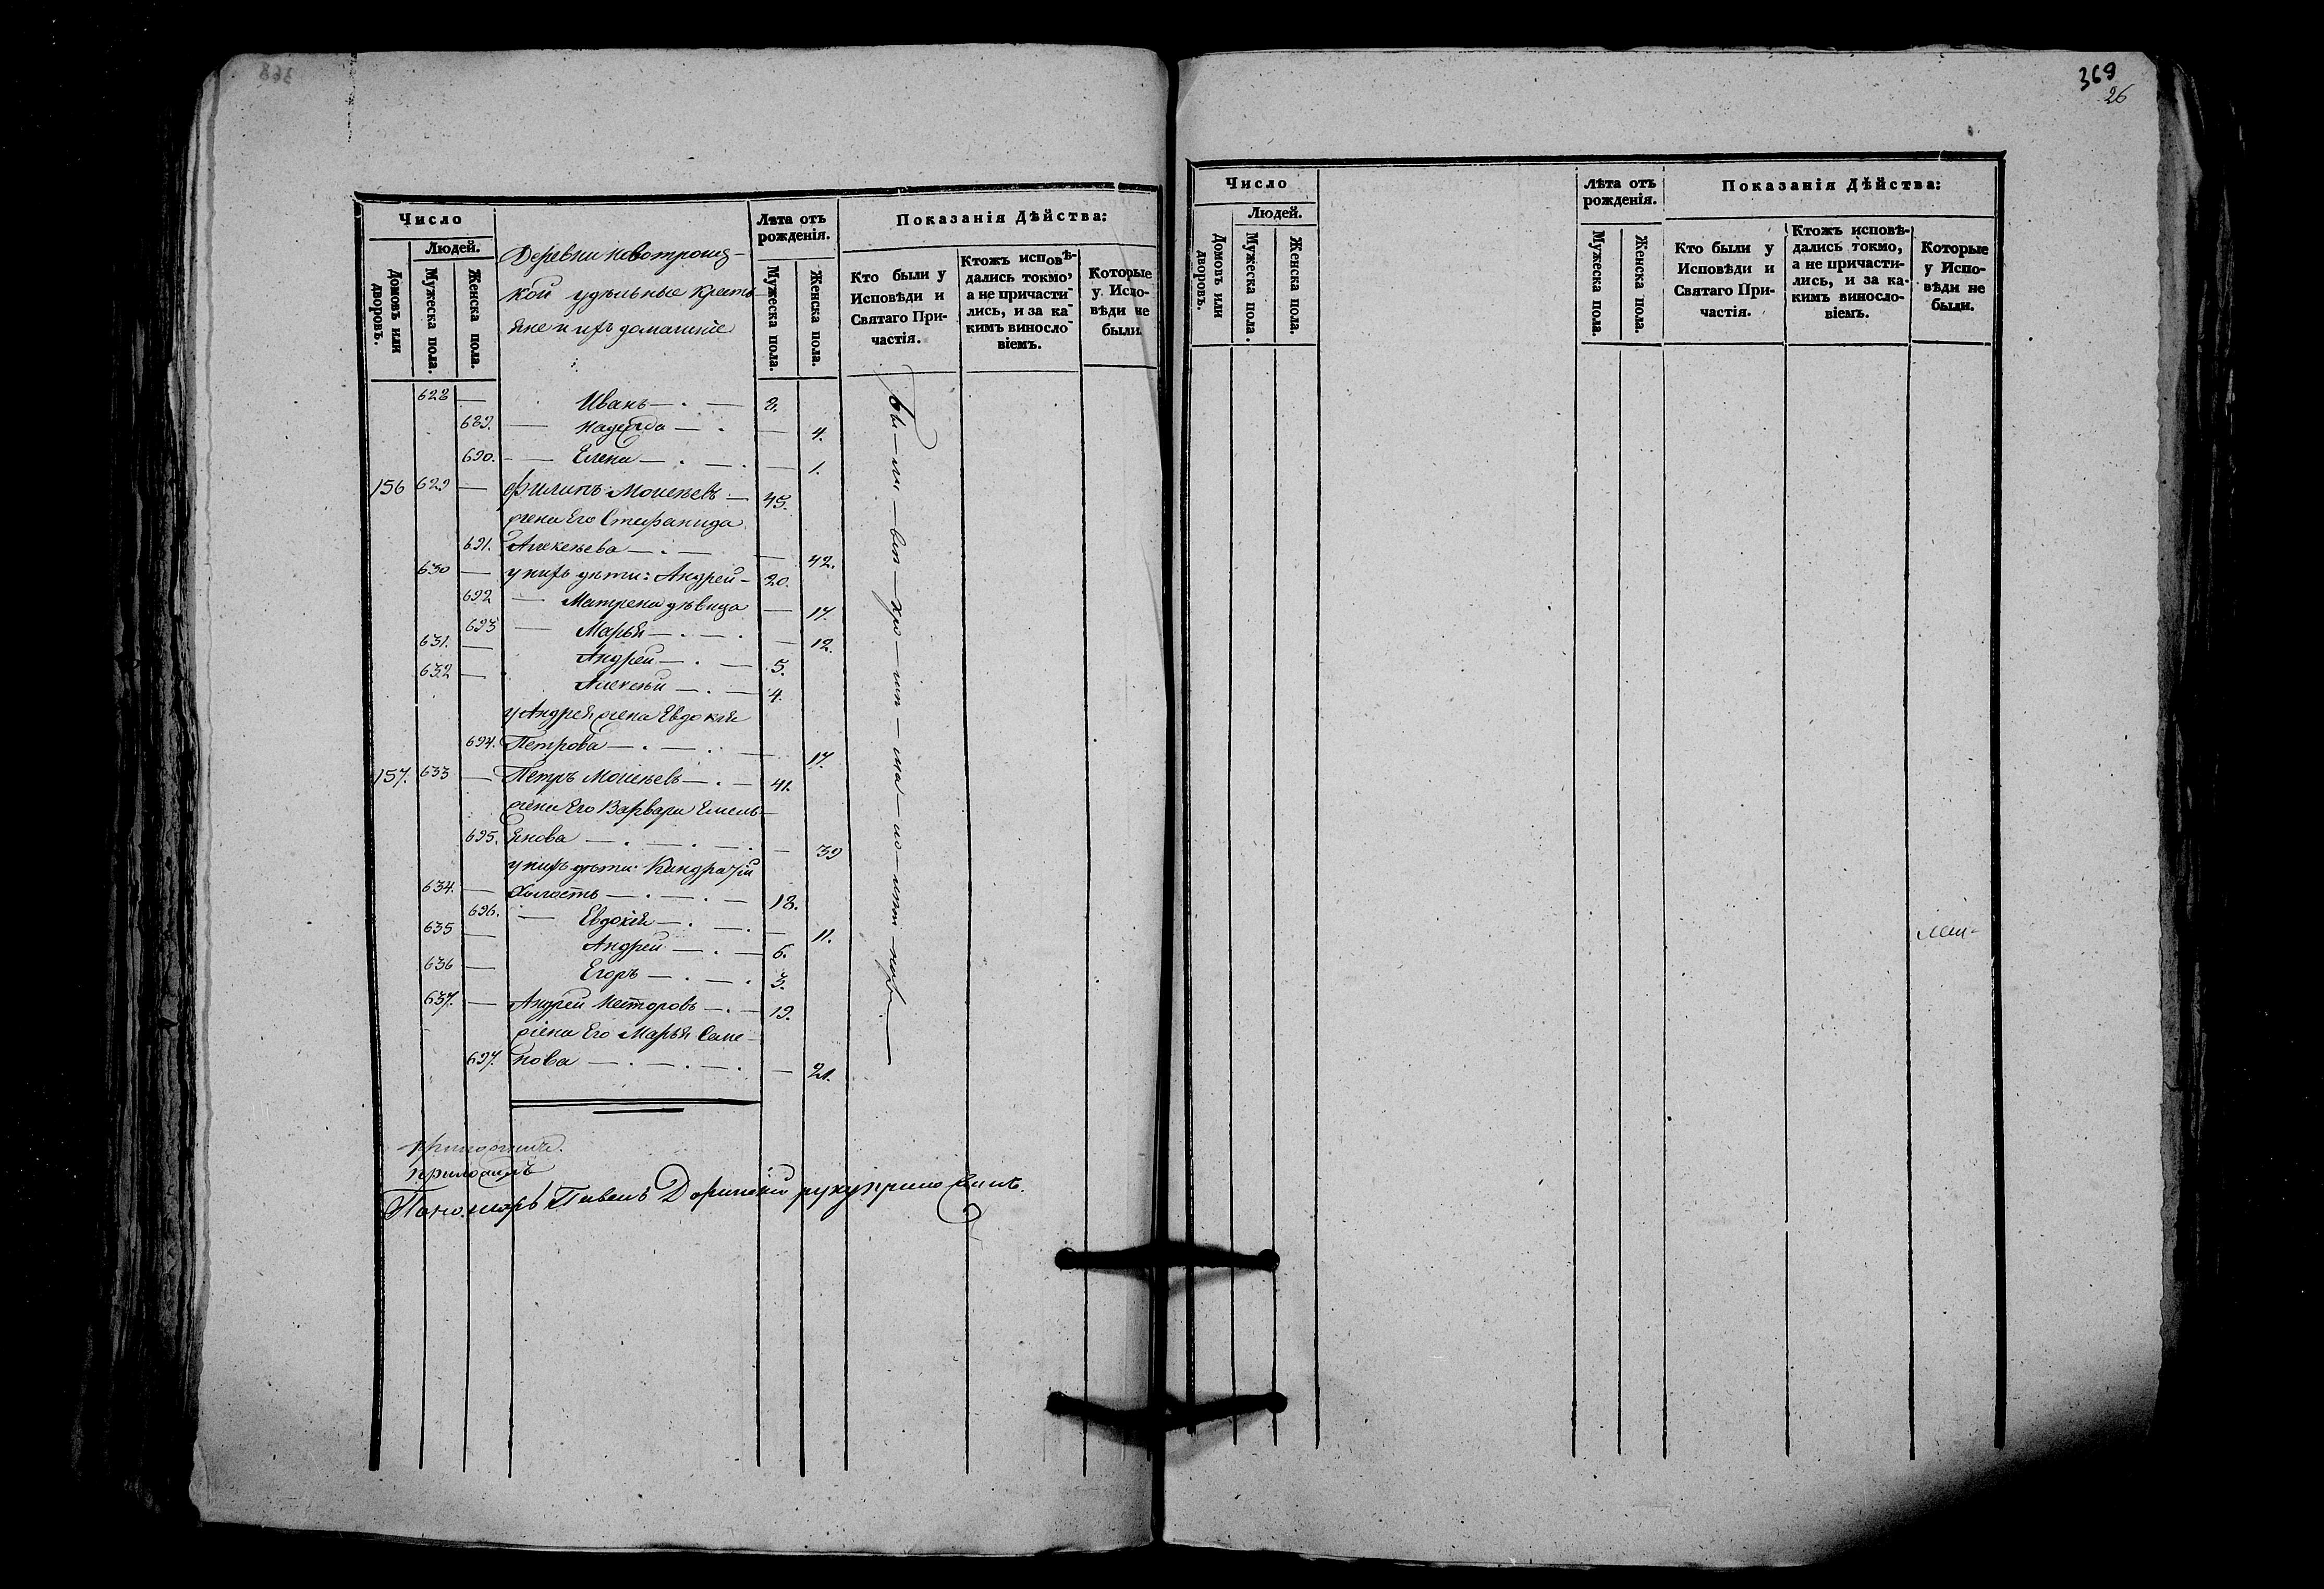 Число
Людей.
Домовъ или дворовъ.
Мужеска пола.
Женска пола.
Деревни Новотроиц-
кой удѣльные кресть-
яне и ихъ домашніе
Лѣта отъ рожденія.
Мужеска пола.
Женска пола.
Показанія Дѣйства:
Кто были у Исповѣди и Святаго Причастія.
Ктожъ исповѣдались токмо, а не причастились, и за какимъ винословіемъ.
Которые у Исповѣди не были.
628 — Иванъ — . — 8.
689. — Надежда — . — 4.
690. — Елена — . — . — 1.
156 629 — Филипъ Моисеевъ — 45.
жена Его Стефанида
691. Алексѣева — . — 42.
630 — у нихъ дѣти: Андрей — 20.
692 — Матрена дѣвица — 17.
693 — Марья — . — . — 12.
631. — Андрей — . — 5.
632 — Алексѣй — . — 4.
у Андрея жена Евдокія
694. Петрова — . — . — 17.
157. 633 — Петръ Моисеевъ — . — 41.
жена Его Варвара Емель-
695. янова — . — . — . — 39
у нихъ дѣти: Кондратій
634. — Холостъ — . — . — 18.
696. — Евдокія — . — . — 11.
635 — Андрей — . — 6.
636 — Егоръ — . — . 3.
637. — Андрей Несторовъ — . — 19.
жена Его Марья Семе-
697. нова — . — . — . — 21.
Бы — ли —
приложилъ
Пономарь Павелъ руку приложилъ.
369
26
Число
Людей.
Домовъ или дворовъ.
Мужеска пола.
Женска пола.
Лѣта отъ рожденія.
Мужеска пола.
Женска пола.
Показанія Дѣйства:
Кто были у Исповѣди и Святаго Причастія.
Ктожъ исповѣдались токмо, а не причастились, и за какимъ винословіемъ.
Которые у Исповѣди не были.